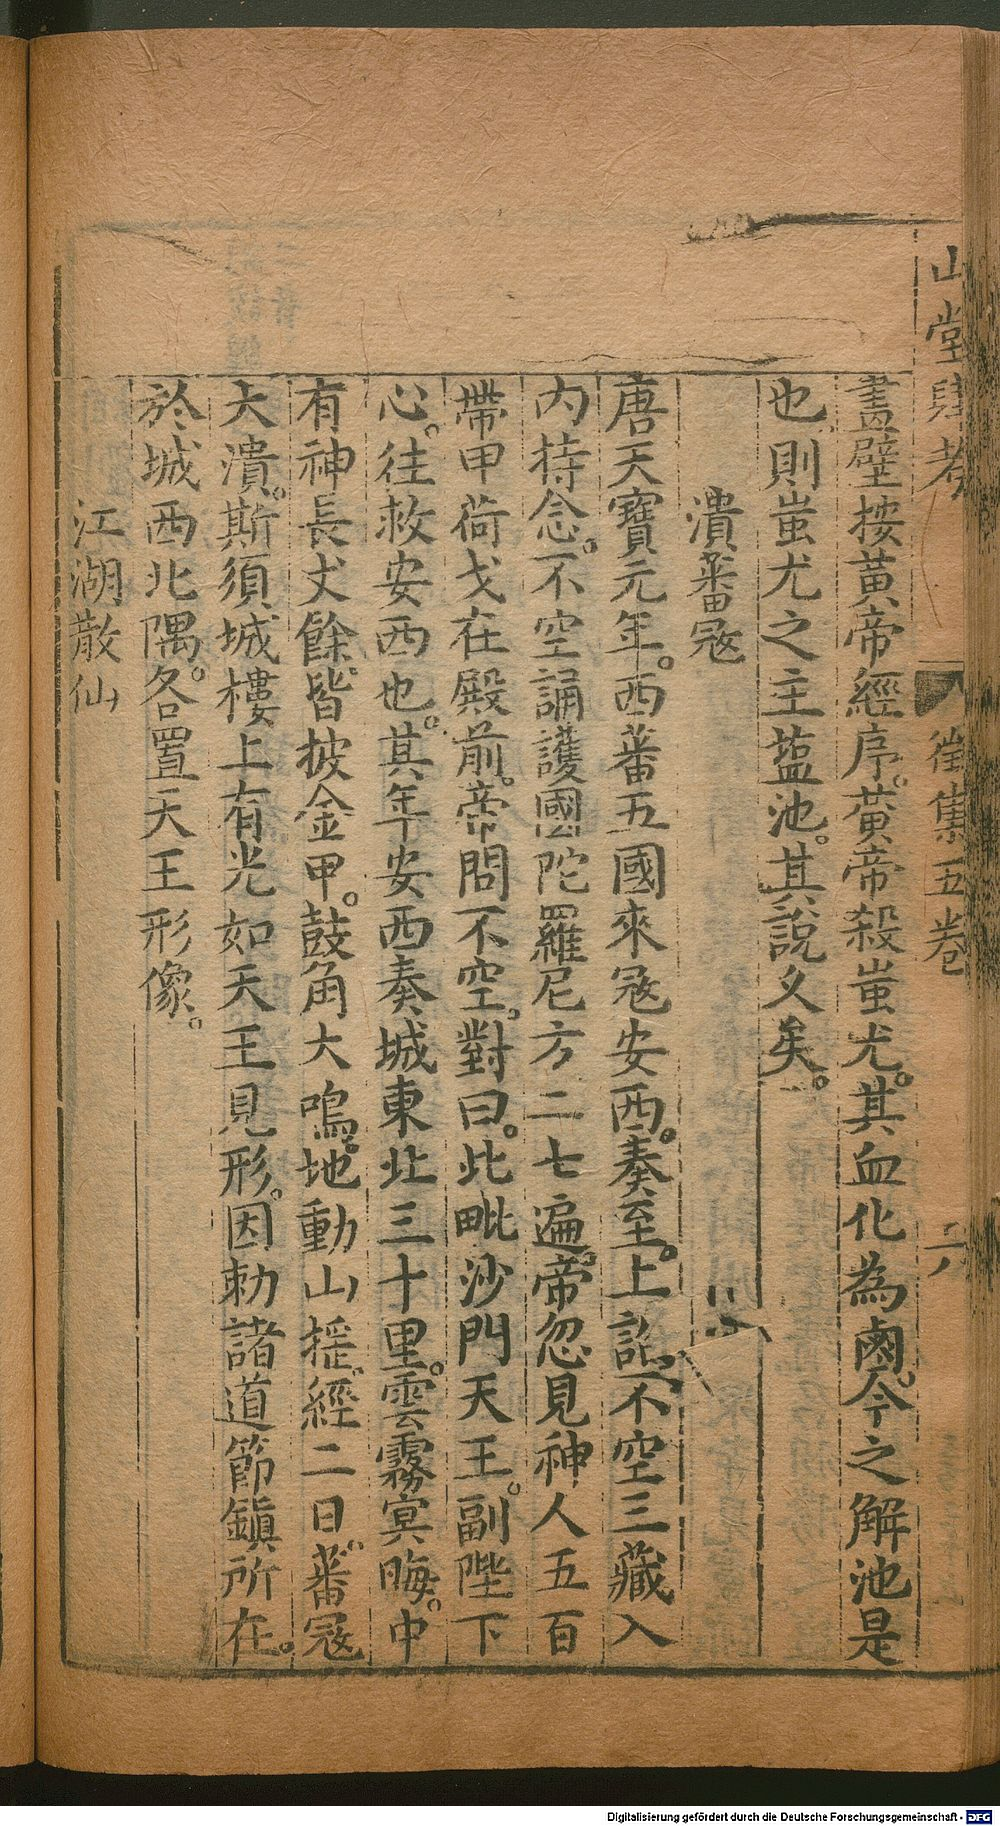 山堂肆考 徵集五卷 六
盡壁按黄帝經序。黄帝殺蚩尤。其血化為鹵。今之解池是
也則蚩尤之主蓝池。其說久矣。
潰蕃宼
唐天寶元年。西蕃五國來宼安西。奏至。上詔不空三藏入
内持念。不空誦護國陀羅尼方二七遍。帝忽見神人五百
帶甲荷戈在殿前。帝問不空。對曰。此毗沙門天王。副陛下
心。往救安西也。其年安西奏城東北三十里。雲霧冥晦。中
有神長丈餘。皆披金甲。鼓角大鳴。地動山摇。經二日。蕃宼
大潰。斯須城樓上有光如天王見形。因勅諸道節鎮所在。
於城西北隅。各置天王形像。
江湖散仙
Digitalisierung gefördert durch die Deutsche Forschungsgemeinschaft - DFG